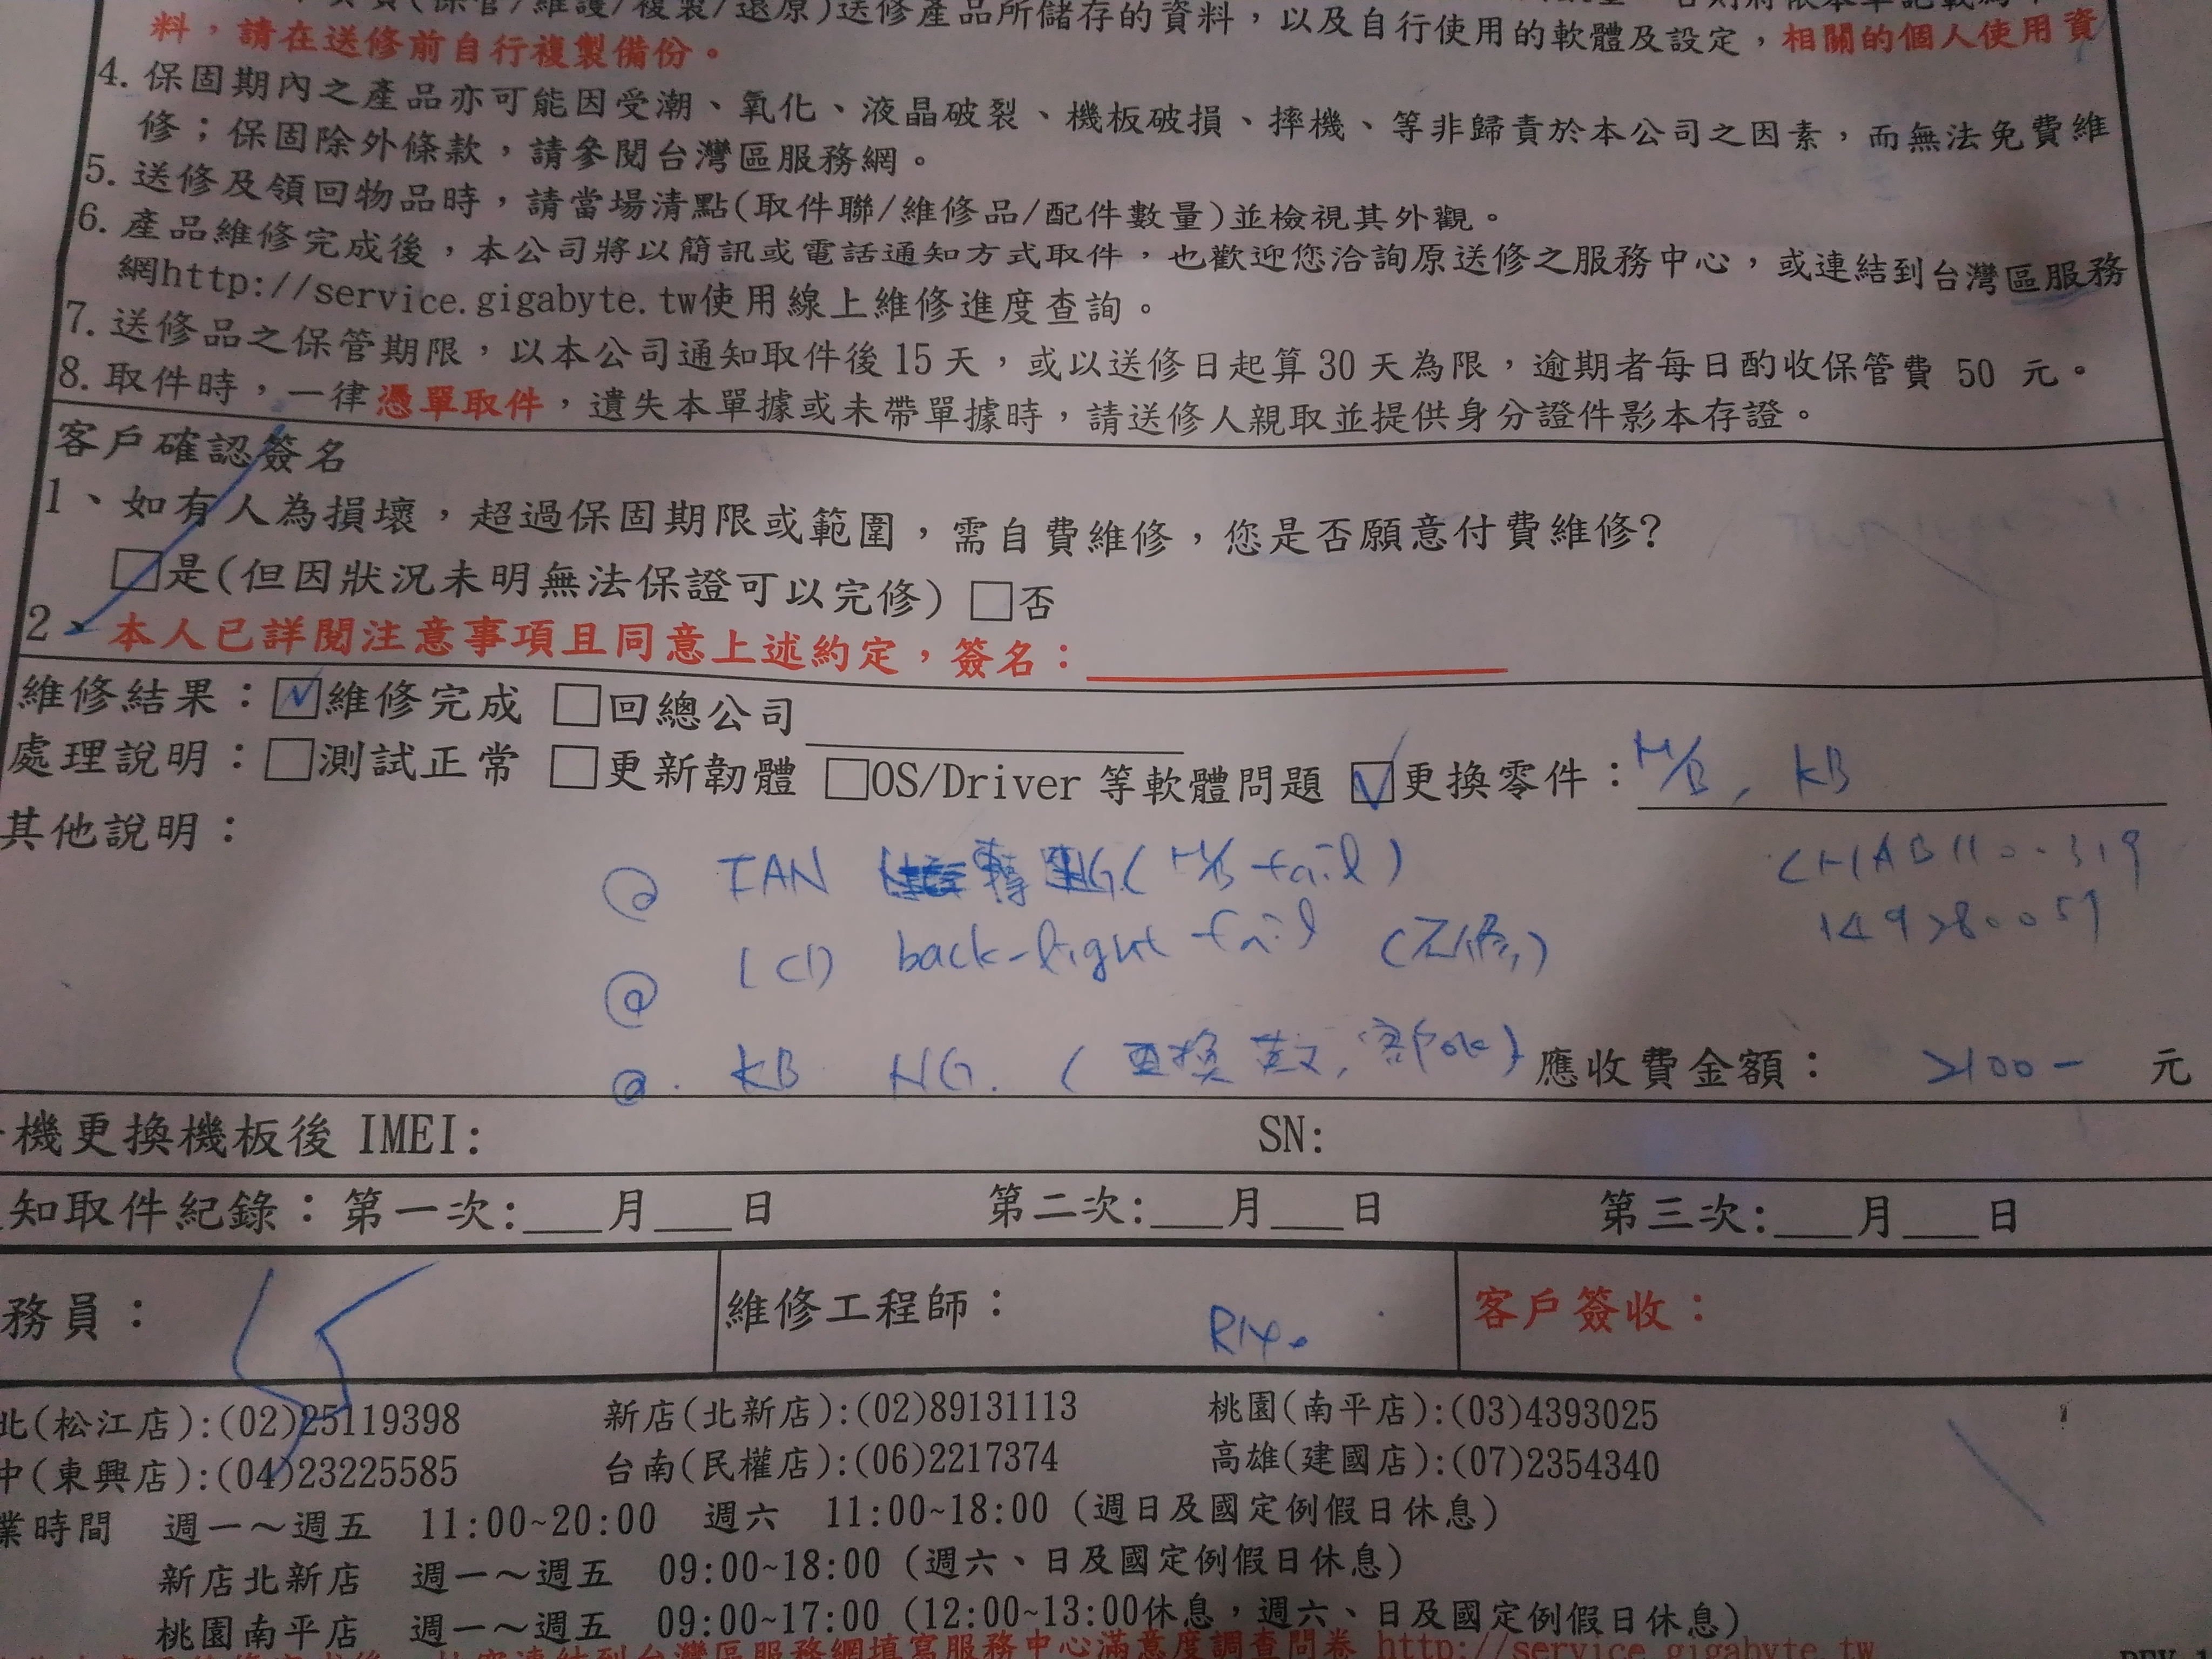 (保管/維護/複製/還原)送修產品所儲存的資料，以及自行使用的軟體及設定，相關的個人使用資
料，請在送修前自行複製備份。
4. 保固期內之產品亦可能因受潮、氧化、液晶破裂、機板破損、摔機、等非歸責於本公司之因素，而無法免費維
修；保固除外條款，請參閱台灣區服務網。
5. 送修及領回物品時，請當場清點(取件聯/維修品/配件數量)並檢視其外觀。
6. 產品維修完成後，本公司將以簡訊或電話通知方式取件，也歡迎您洽詢原送修之服務中心，或連結到台灣區服務
網http://service.gigabyte.tw使用線上維修進度查詢。
7. 送修品之保管期限，以本公司通知取件後15天，或以送修日起算30天為限，逾期者每日酌收保管費 50 元。
8. 取件時，一律憑單取件，遺失本單據或未帶單據時，請送修人親取並提供身分證件影本存證。
客戶確認簽名
1、如有人為損壞，超過保固期限或範圍，需自費維修，您是否願意付費維修?
□是(但因狀況未明無法保證可以完修) □否
2、本人已詳閱注意事項且同意上述約定，簽名：
維修結果：☑維修完成 □回總公司
處理說明：□測試正常 □更新韌體 □OS/Driver 等軟體問題 ☑更換零件：M/B, KB
其他說明：
@ FAN 轉 NG (M/B fail)
@ LCD back-light fail
@. KB NG. (更換英文, 客戶ok) 應收費金額： 2100- 元
機更換機板後 IMEI: SN:
知取件紀錄：第一次:___月___日 第二次:___月___日 第三次:___月___日
務員： 維修工程師： 客戶簽收：
北(松江店):(02)25119398 新店(北新店):(02)89131113 桃園(南平店):(03)4393025
中(東興店):(04)23225585 台南(民權店):(06)2217374 高雄(建國店):(07)2354340
業時間 週一～週五 11:00~20:00 週六 11:00~18:00 (週日及國定例假日休息)
新店北新店 週一～週五 09:00~18:00 (週六、日及國定例假日休息)
桃園南平店 週一～週五 09:00~17:00 (12:00~13:00休息，週六、日及國定例假日休息)
連結到台灣區服務網填寫服務中心滿意度調查問卷 http://service.gigabyte.tw